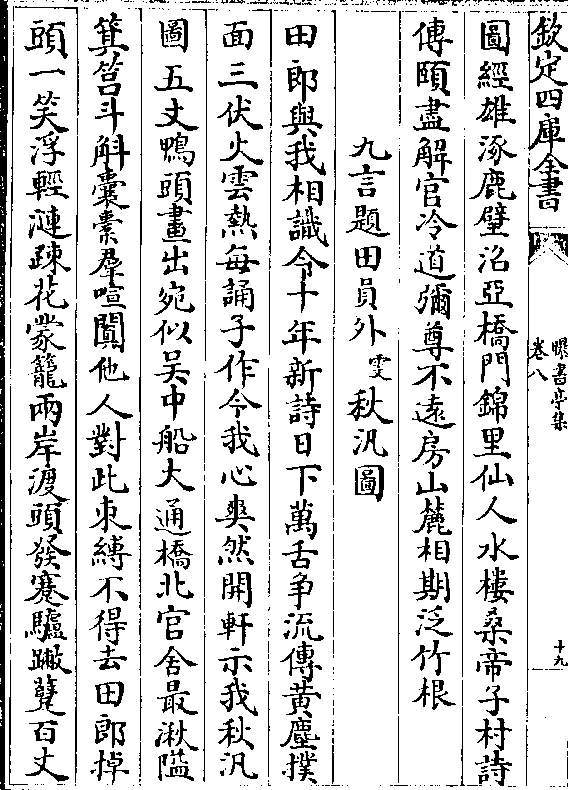 欽定四庫全書
曝書亭集
卷八
十九
圖經雄涿鹿壁沿亞橋門錦里仙人水樓桑帝子村詩
傳頤盡解官冷道彌尊不遠房山麓相期泛竹根
九言題田員外雯秋汎圖
田郎與我相識今十年新詩日下萬舌爭流傳黃塵撲
面三伏火雲熱每誦子作令我心爽然開軒示我秋汎
圖五丈鴨頭畫出宛似吳中船大通橋北官舍最湫隘
箕筥斗斛囊橐羣喧闐他人對此束縛不得去田郎掉
頭一笑浮輕漣疎花蒙籠兩岸渡頭發蹇驢蹴躄百丈